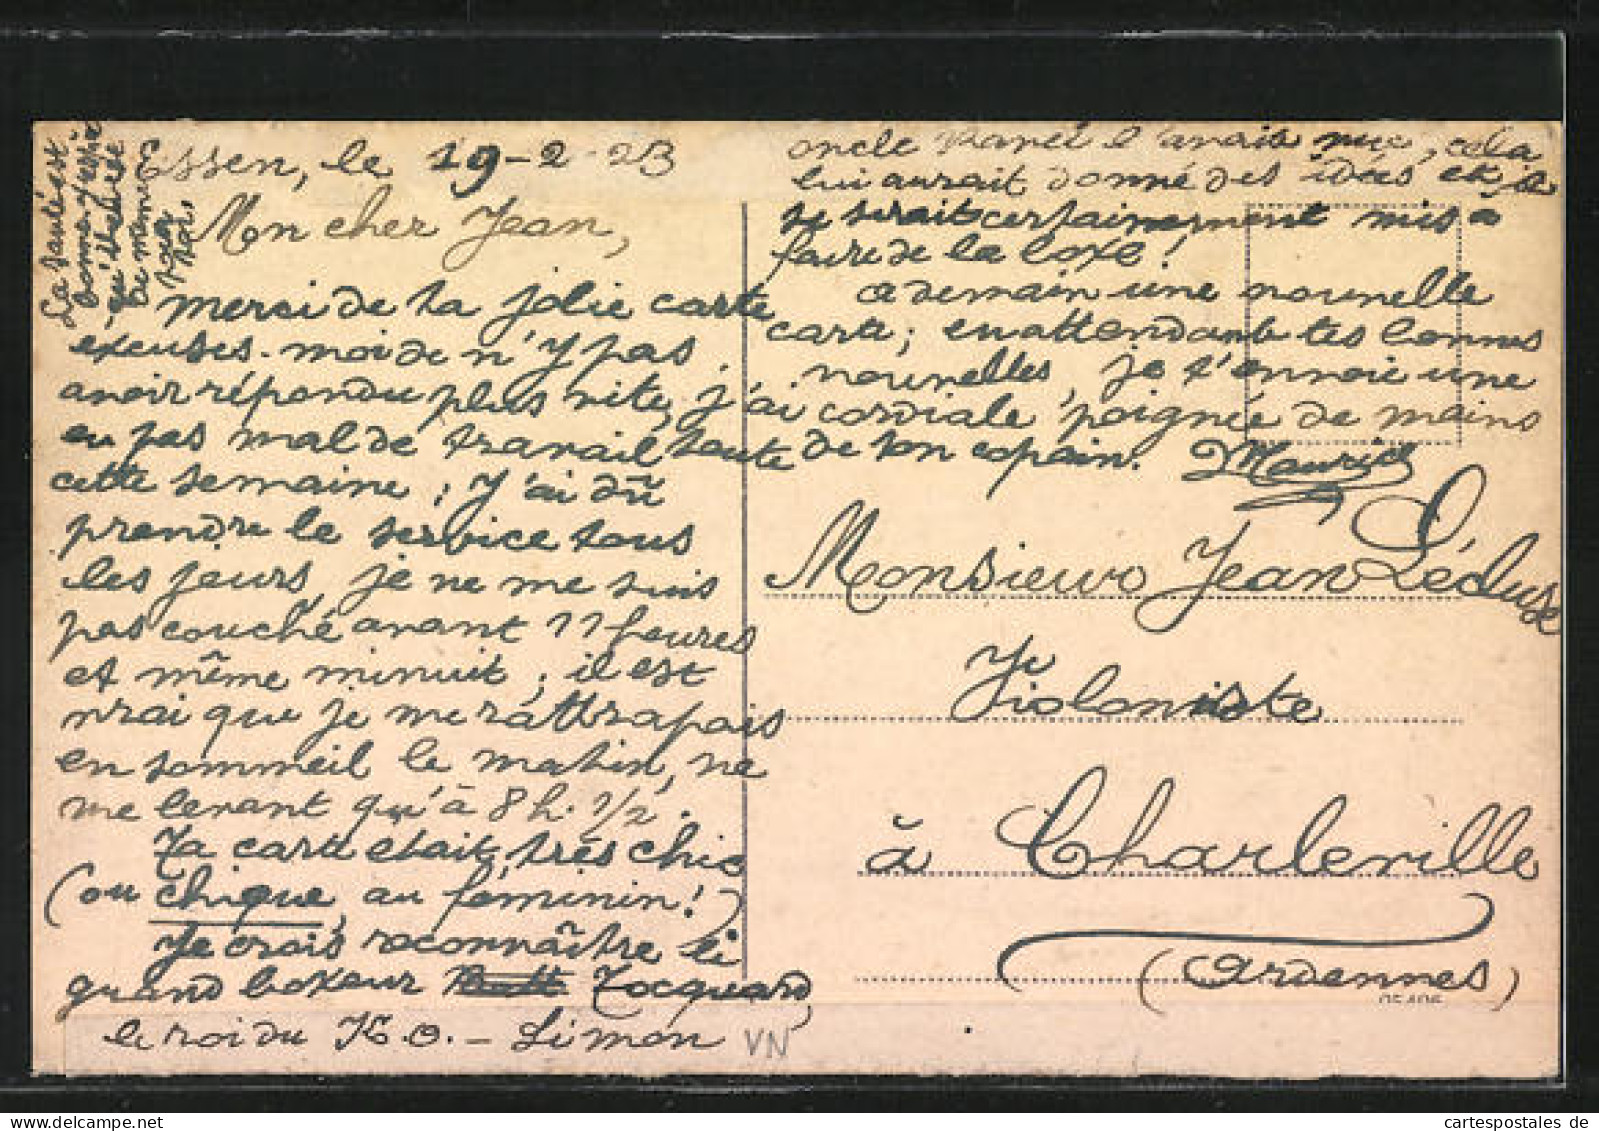 Essen, le 19-2-23
Mon cher Jean,
Merci de ta jolie carte
excuses-moi de n'y pas
avoir répondu plus vite, j'ai
eu pas mal de travail toute
cette semaine; j'ai dû
prendre le service tous
les jours, je ne me suis
pas couché avant 11 heures
et même minuit; il est
vrai que je me rattrapais
en sommeil le matin, ne
me levant qu'à 8 h. 1/2.
Ta carte était très chic
(ou chique, au féminin!)
Je crois reconnaître le
grand boxeur Tocquard,
le roi du K.O. - Simon
oncle l'avait vue, cela
lui aurait donné des idées et il
se serait certainement mis à
faire de la boxe!
A demain une nouvelle
carte; en attendant tes bonnes
nouvelles, je t'envoie une
cordiale poignée de mains
de ton copain. Maurice
La santé est
bonne, j'espère
qu'il en est
de même
Monsieur Jean Lécluse
Violoniste
à Charleville
(Ardennes)
VN
cartespostales de